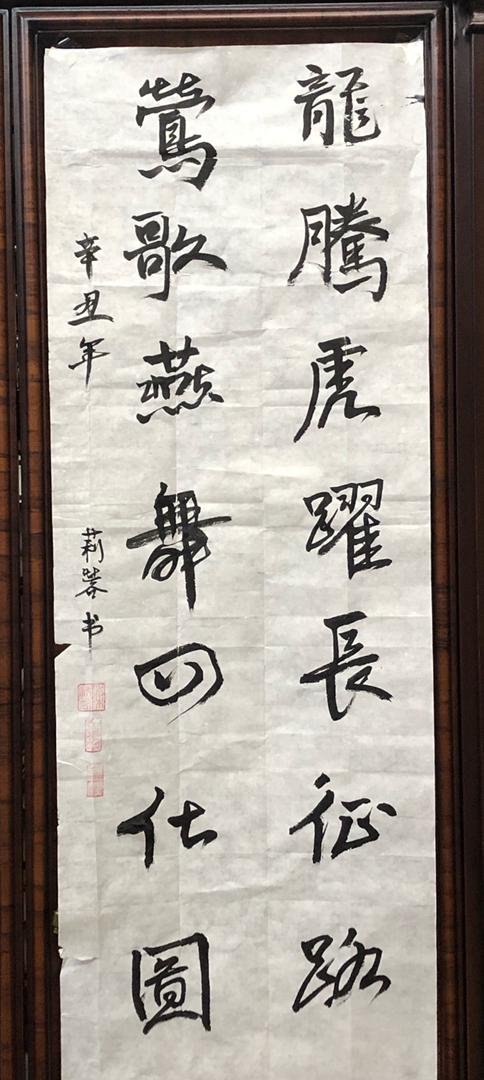 龍騰虎躍長征路
鶯歌燕舞四化圖
辛丑年
莉蓉书